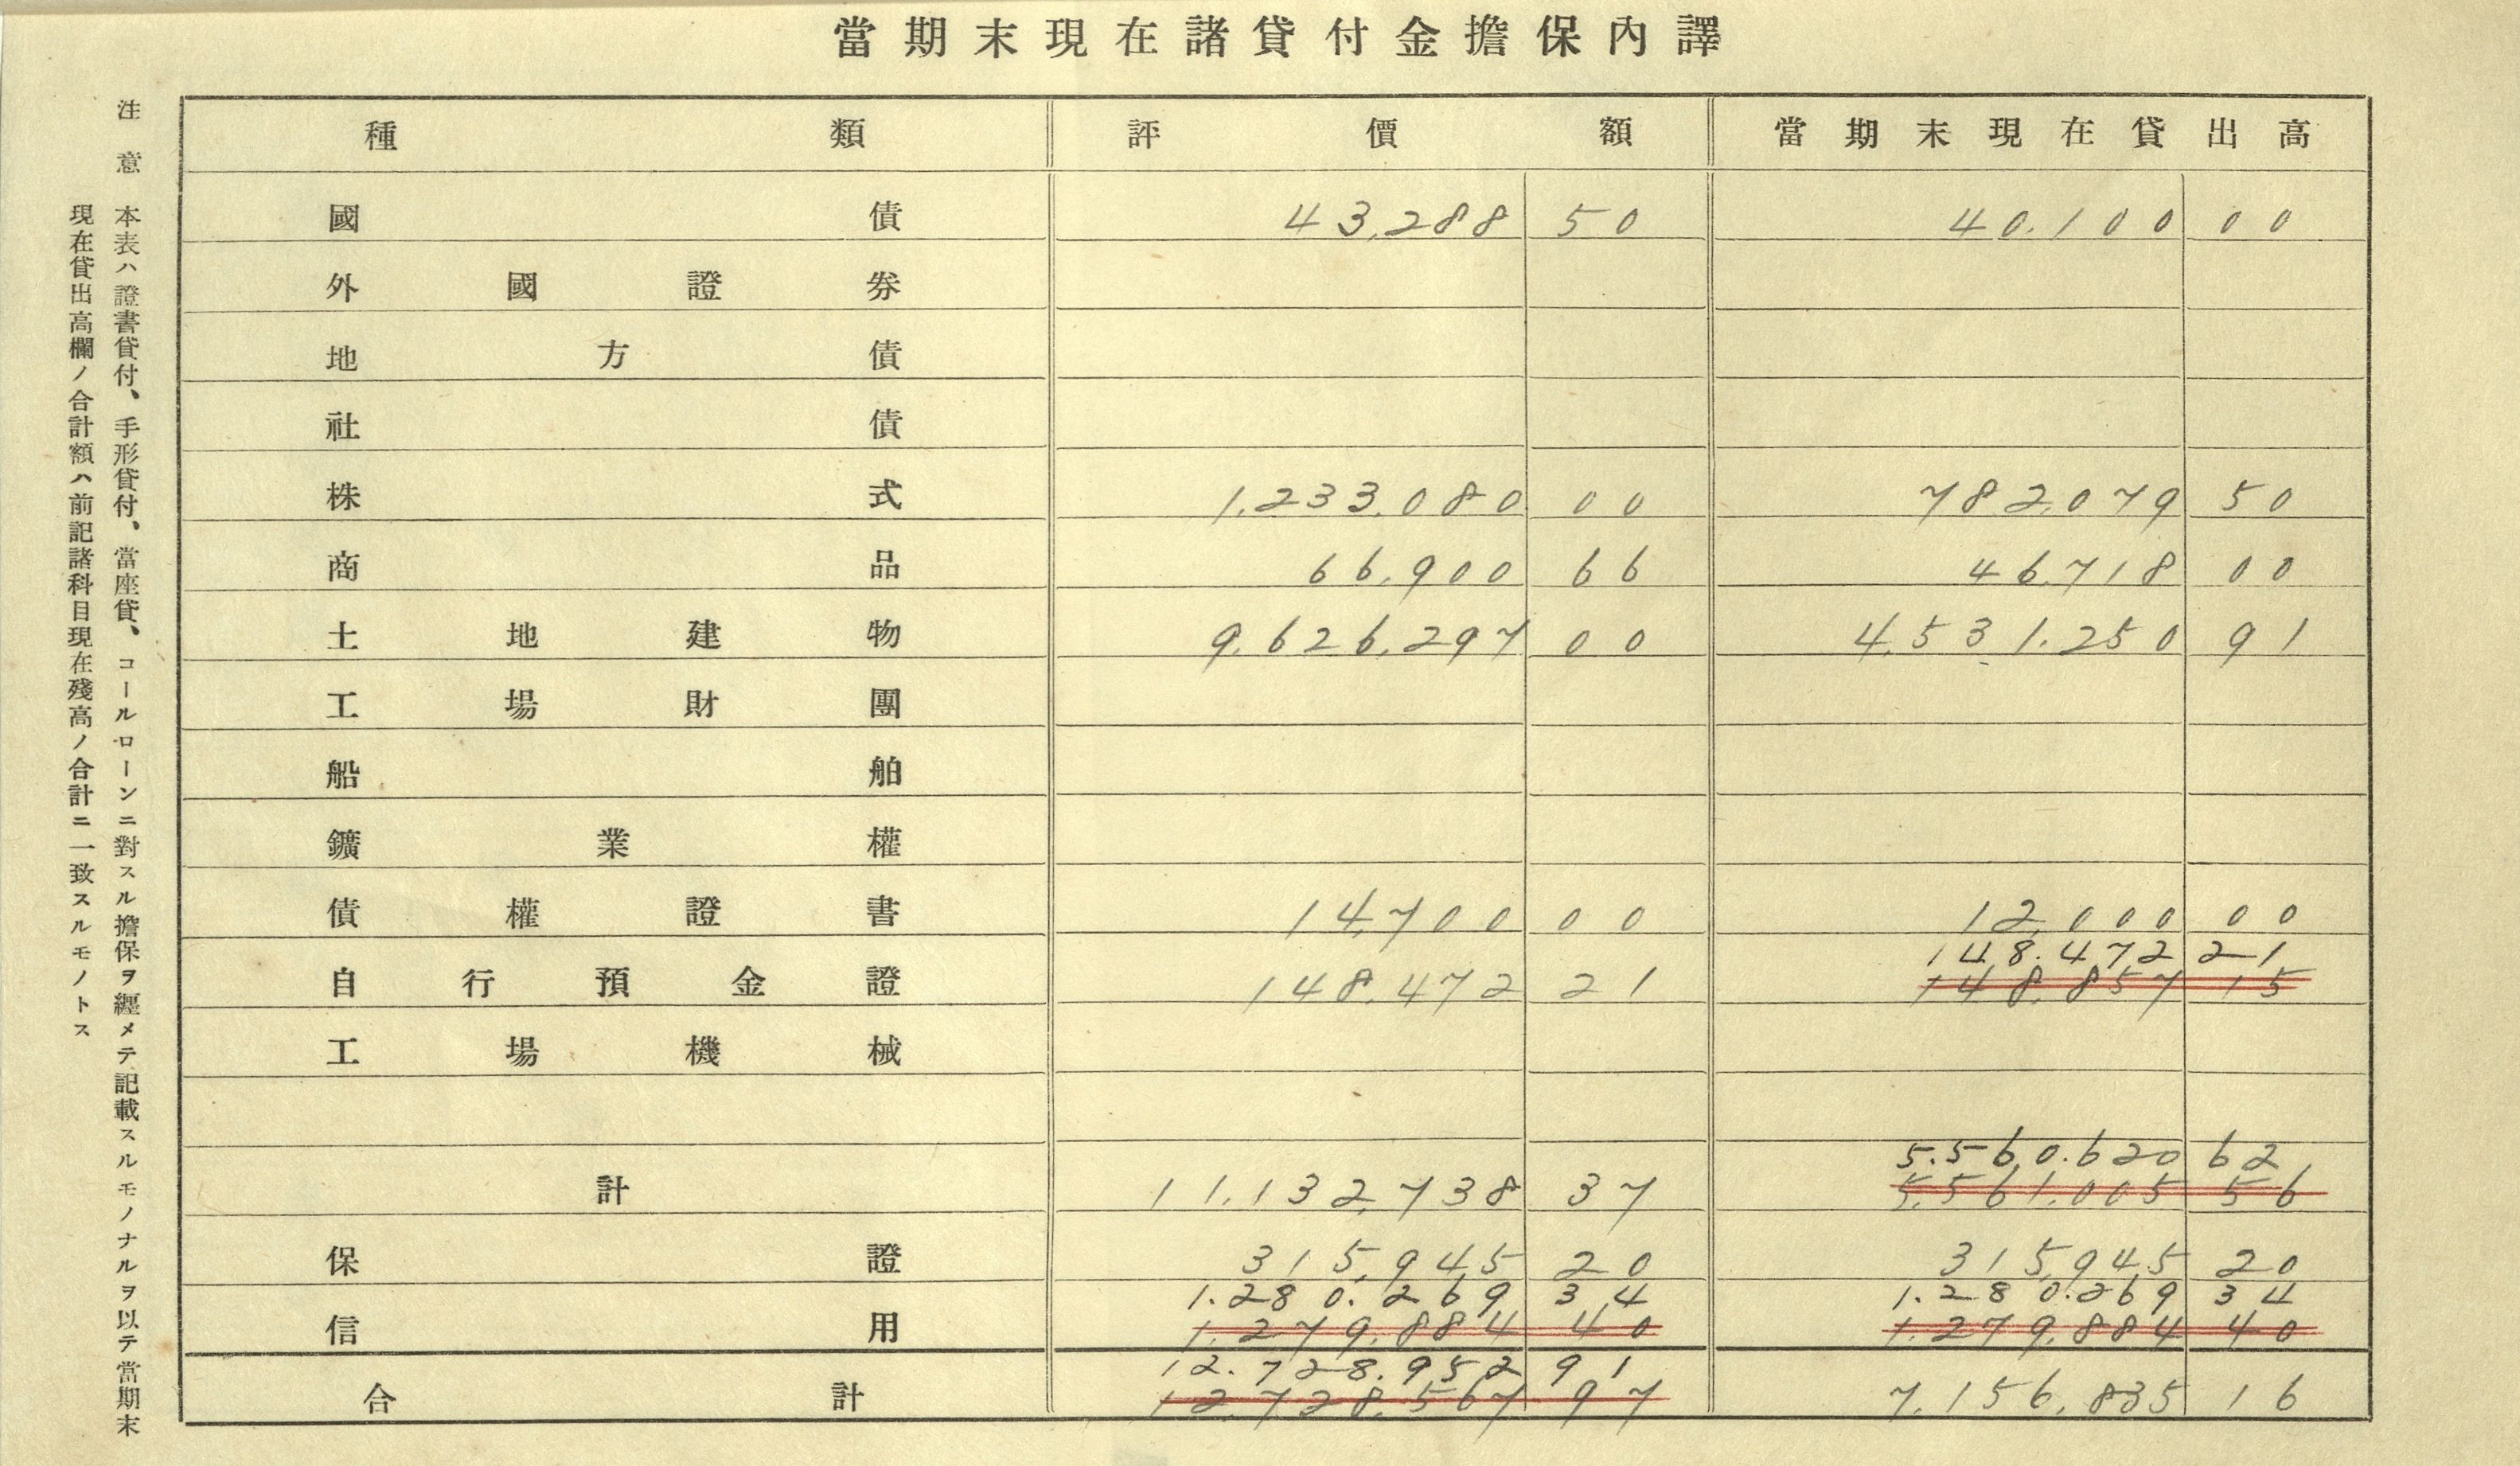 當期末現在諸貸付金擔保內譯
種類 評價額 當期末現在貸出高
國債 43,288 50 40.100 00
外國證券
地方債
社債
株式 1.233.080 00 782,079 50
商品 66,900 66 46.718 00
土地建物 9.626,297 00 4,531.250 91
工場財團
船舶
鑛業權
債權證書 14,700 00 12,000 00
148.472 21
自行預金證 148.472 21 148.857 15
工場機械
5.560.620 62
計 11.132,738 37 5.561.005 56
保證 315,945 20 315,945 20
1.280.269 34 1.280.269 34
信用 1.279.884 40 1.279.884 40
12.728.952 91
合計 12.728.567 97 7.156.835 16
注意
本表ハ證書貸付、手形貸付、當座貸、コールローンニ對スル擔保ヲ纒メテ記載スルモノナルヲ以テ當期末
現在貸出高欄ノ合計額ハ前記諸科目現在殘高ノ合計ニ一致スルモノトス